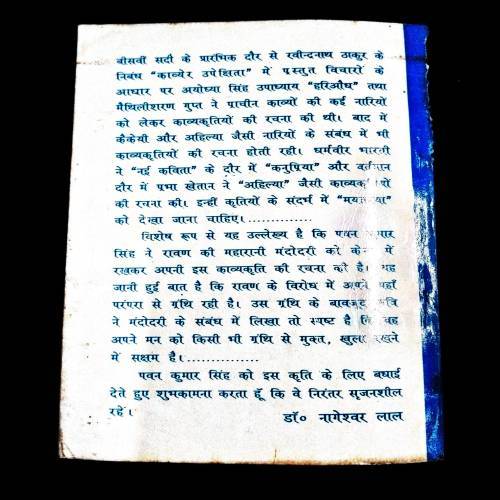 बीसवीं सदी के प्रारंभिक दौर से रवीन्द्रनाथ ठाकुर के
निबंध "काव्येर उपेक्षिता" में प्रस्तुत विचारों के
आधार पर अयोध्या सिंह उपाध्याय "हरिऔध" तथा
मैथिलीशरण गुप्त ने प्राचीन काव्यों की कई नारियों
को लेकर काव्यकृतियों की रचना की थी। बाद में
कैकेयी और अहिल्या जैसी नारियों के संबंध में भी
काव्यकृतियों की रचना होती रही। धर्मवीर भारती
ने "नई कविता" के दौर में "कनुप्रिया" और वर्तमान
दौर में प्रभा खेतान ने "अहिल्या" जैसी काव्यकृतियों
की रचना की। इन्हीं कृतियों के संदर्भ में
को देखा जाना चाहिए।..............
विशेष रूप से यह उल्लेख्य है कि पवन कुमार
सिंह ने रावण की महारानी मंदोदरी को केन्द्र में
रखकर अपनी इस काव्यकृति की रचना की है। यह
जानी हुई बात है कि रावण के विरोध में अपने यहाँ
परंपरा से ग्रंथि रही है। उस ग्रंथि के बावजूद कवि
ने मंदोदरी के संबंध में लिखा तो स्पष्ट है कि वह
अपने मन को किसी भी ग्रंथि से मुक्त, खुला रखने
में सक्षम है।...............
पवन कुमार सिंह को इस कृति के लिए बधाई
देते हुए शुभकामना करता हूँ कि वे निरंतर सृजनशील
रहें।
डॉ० नागेश्वर लाल